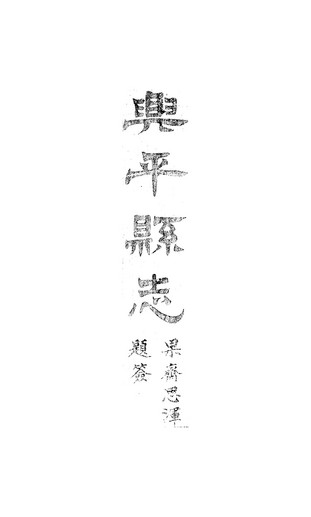 興平縣志
果齊思渾
題簽